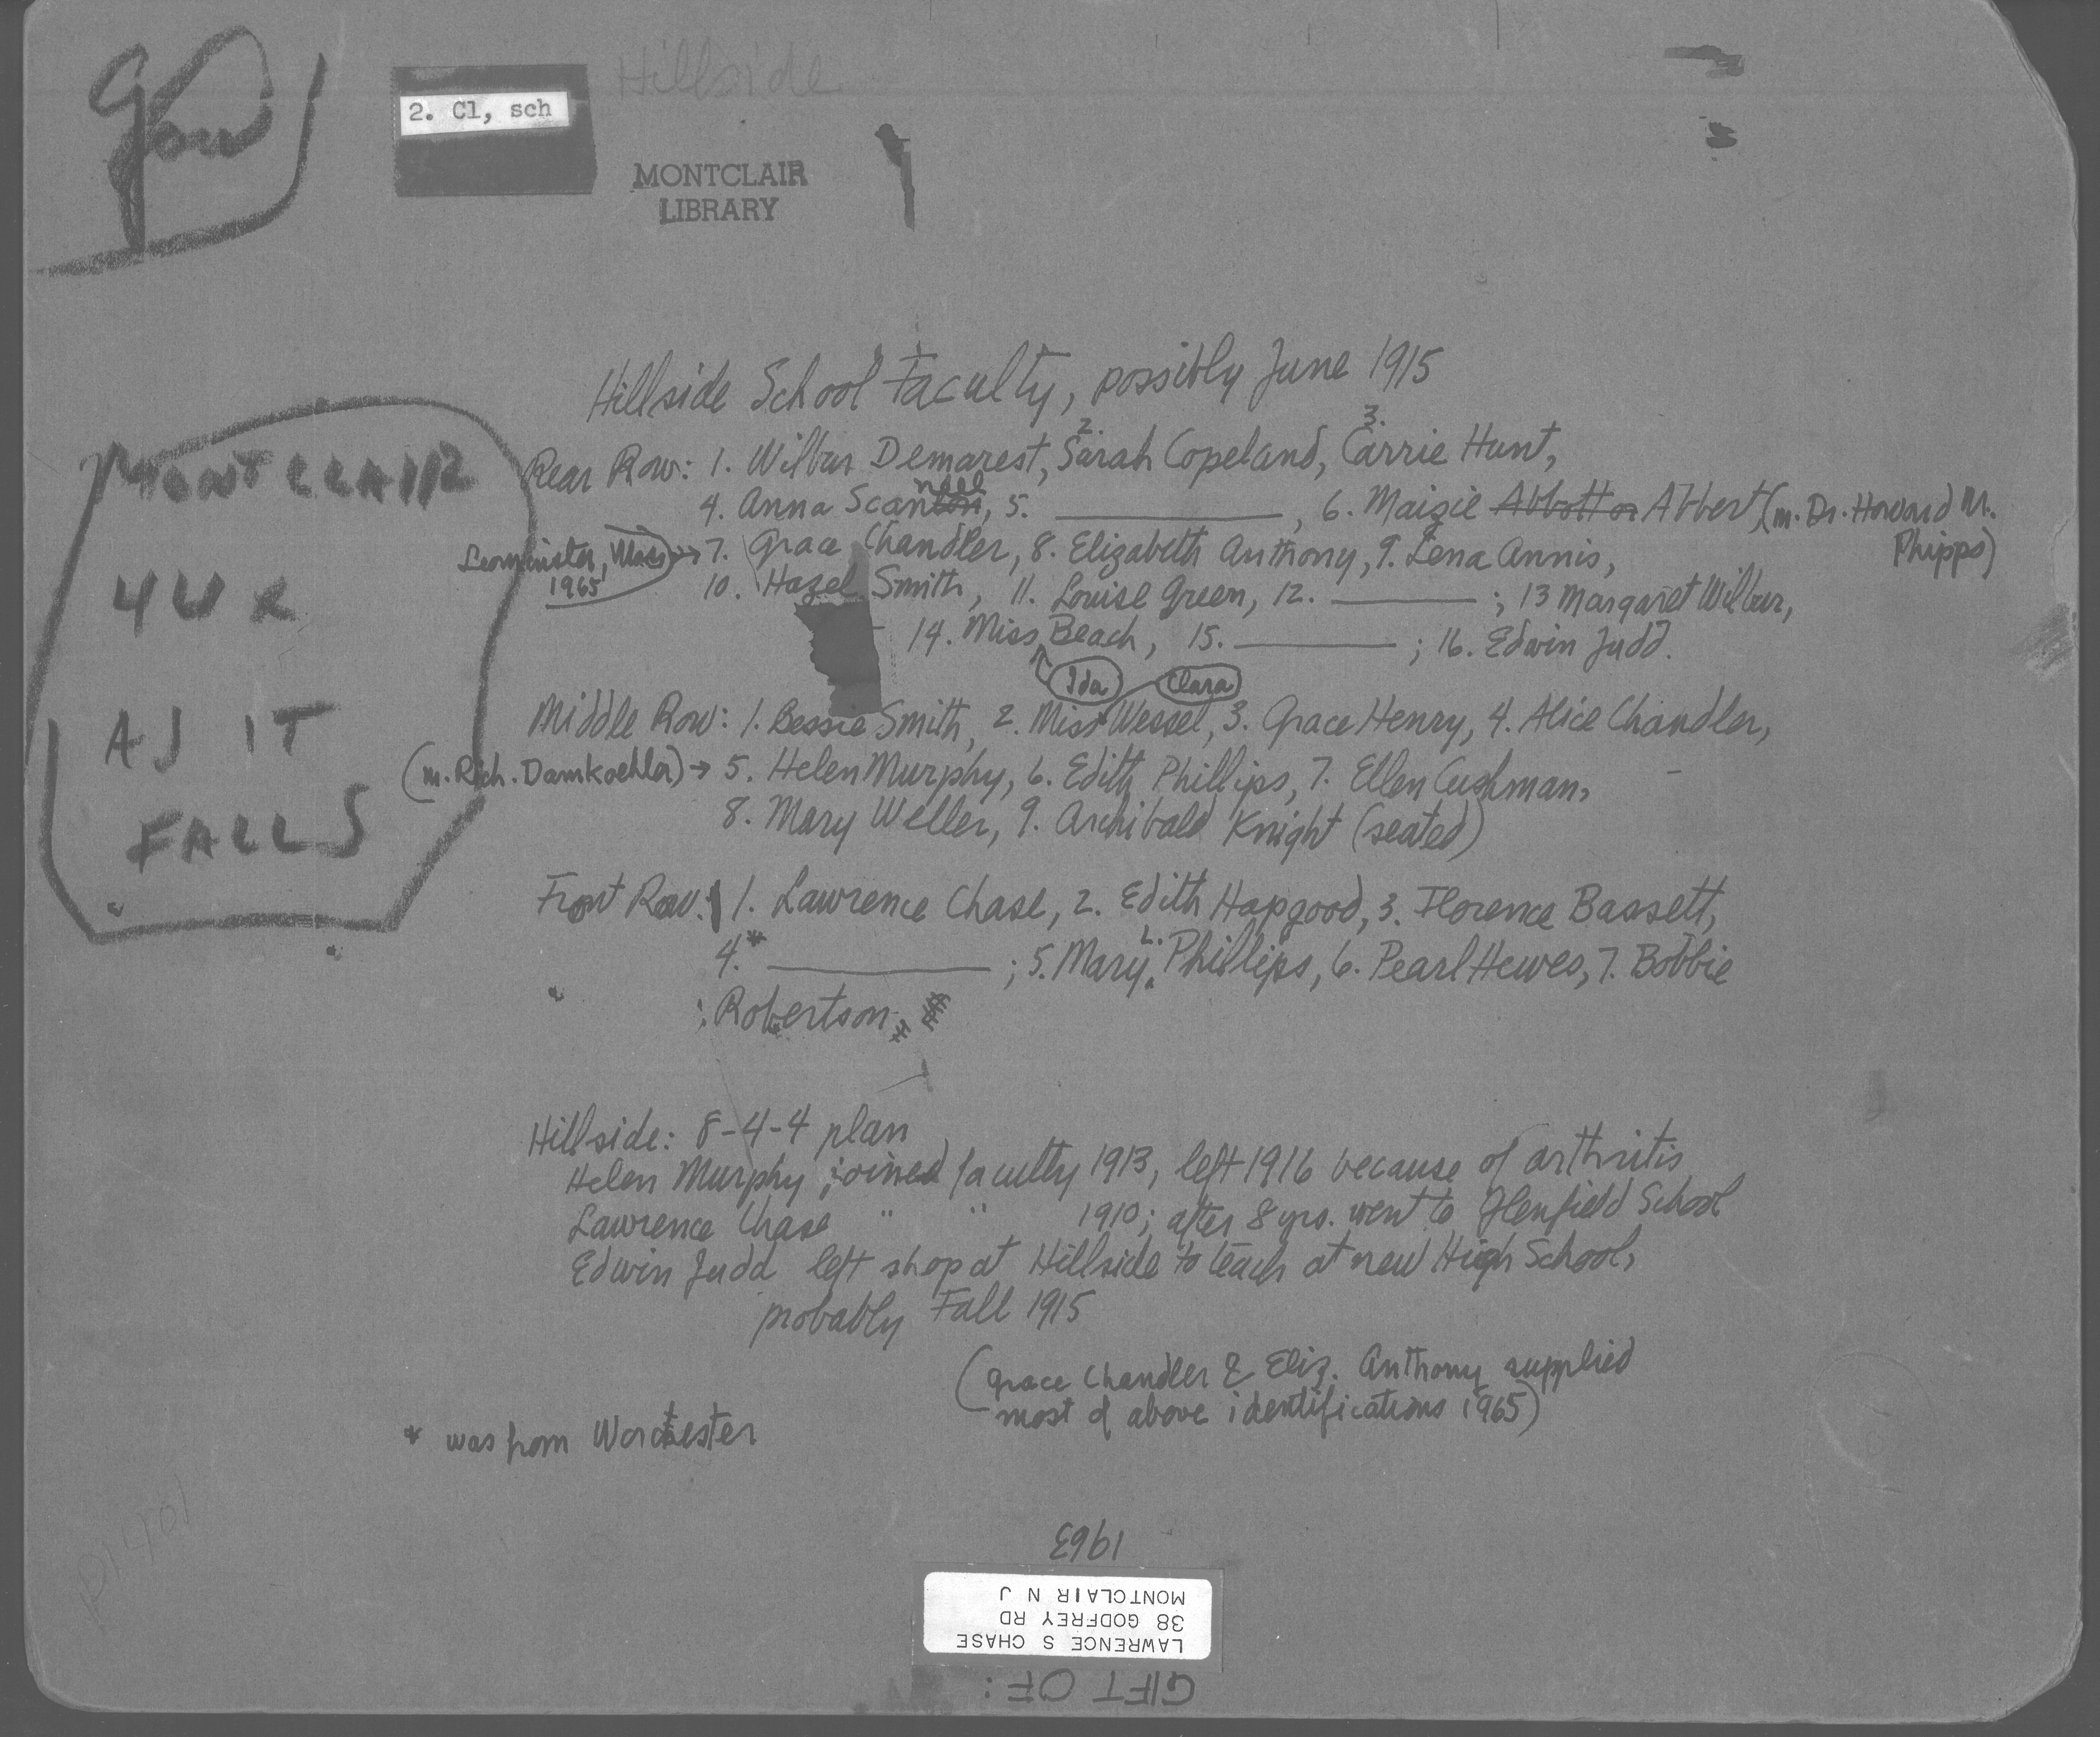 Hillside
2. Cl, sch
MONTCLAIR
LIBRARY
Hillside School Faculty, possibly June 1915
Rear Row: 1. Wilbur Demarest, 2. Sarah Copeland, 3. Carrie Hunt,
4. Anna Scannell, 5. ________, 6. Maizie Abbott or Abbert (m. Dr. Howard M. Phipps)
Leominster, Mass 1965 → 7. Grace Chandler, 8. Elizabeth Anthony, 9. Lena Annis,
10. Hazel Smith, 11. Louise Green, 12. ________; 13 Margaret Wilbur,
14. Miss Beach, 15. ________; 16. Edwin Judd.
Ida Clara
Middle Row: 1. Bessie Smith, 2. Miss Wessel, 3. Grace Henry, 4. Alice Chandler,
(m. Rich. Damkoehler) → 5. Helen Murphy, 6. Edith Phillips, 7. Ellen Cushman,
8. Mary Weller, 9. Archibald Knight (seated)
Front Row: 1. Lawrence Chase, 2. Edith Hapgood, 3. Florence Bassett,
4.* ________; 5. Mary L. Phillips, 6. Pearl Hewes, 7. Bobbie
Robertson
Hillside: 8-4-4 plan
Helen Murphy joined faculty 1913, left 1916 because of arthritis
Lawrence Chase " " 1910; after 8 yrs. went to Glenfield School
Edwin Judd left shop at Hillside to teach at new High School,
probably Fall 1915
(Grace Chandler & Eliz. Anthony supplied
most of above identifications 1965)
* was from Worcester
MONTCLAIR
AS IT
FALLS
P1401
GIFT OF:
LAWRENCE S CHASE
38 GODFREY RD
MONTCLAIR N J
1963